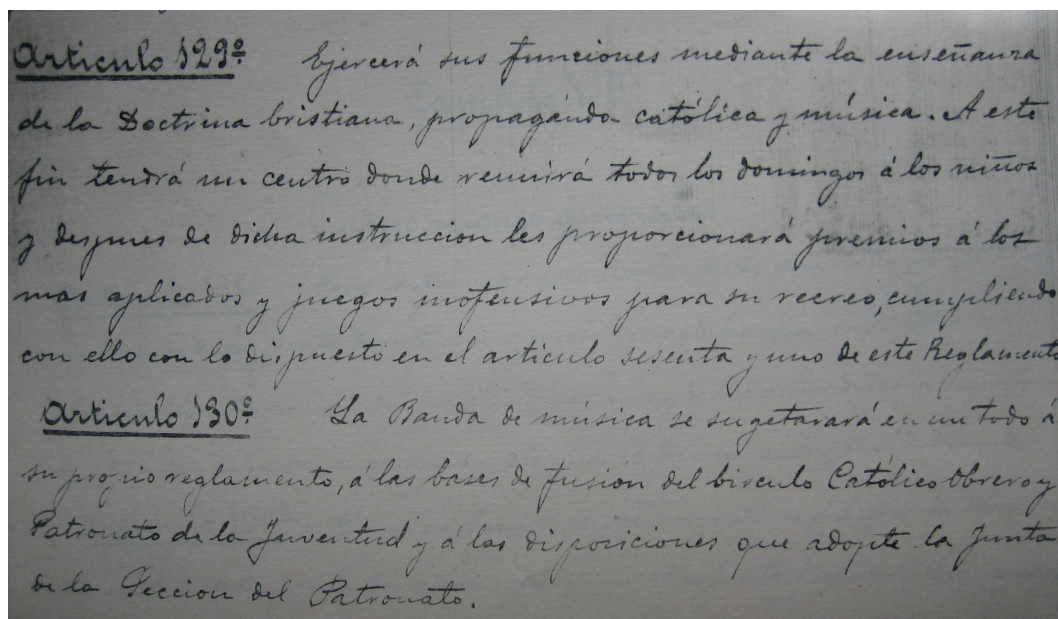 Artículo 129º Ejercerá sus funciones mediante la enseñanza
de la Doctrina Cristiana, propagánda católica y música. A este
fin tendrá un centro donde reunirá todos los domingos á los niños
y despues de dicha instruccion les proporcionará premios á los
mas aplicados y juegos inofensivos para su recreo, cumpliendo
con ello con lo dispuesto en el articulo sesenta y uno de este Reglamento
Artículo 130º La Banda de música se sugetarará en un todo á
su propio reglamento, á las bases de fusion del Circulo Católico Obrero y
Patronato de la Juventud y á las disposiciones que adopte la Junta
de la Seccion del Patronato.